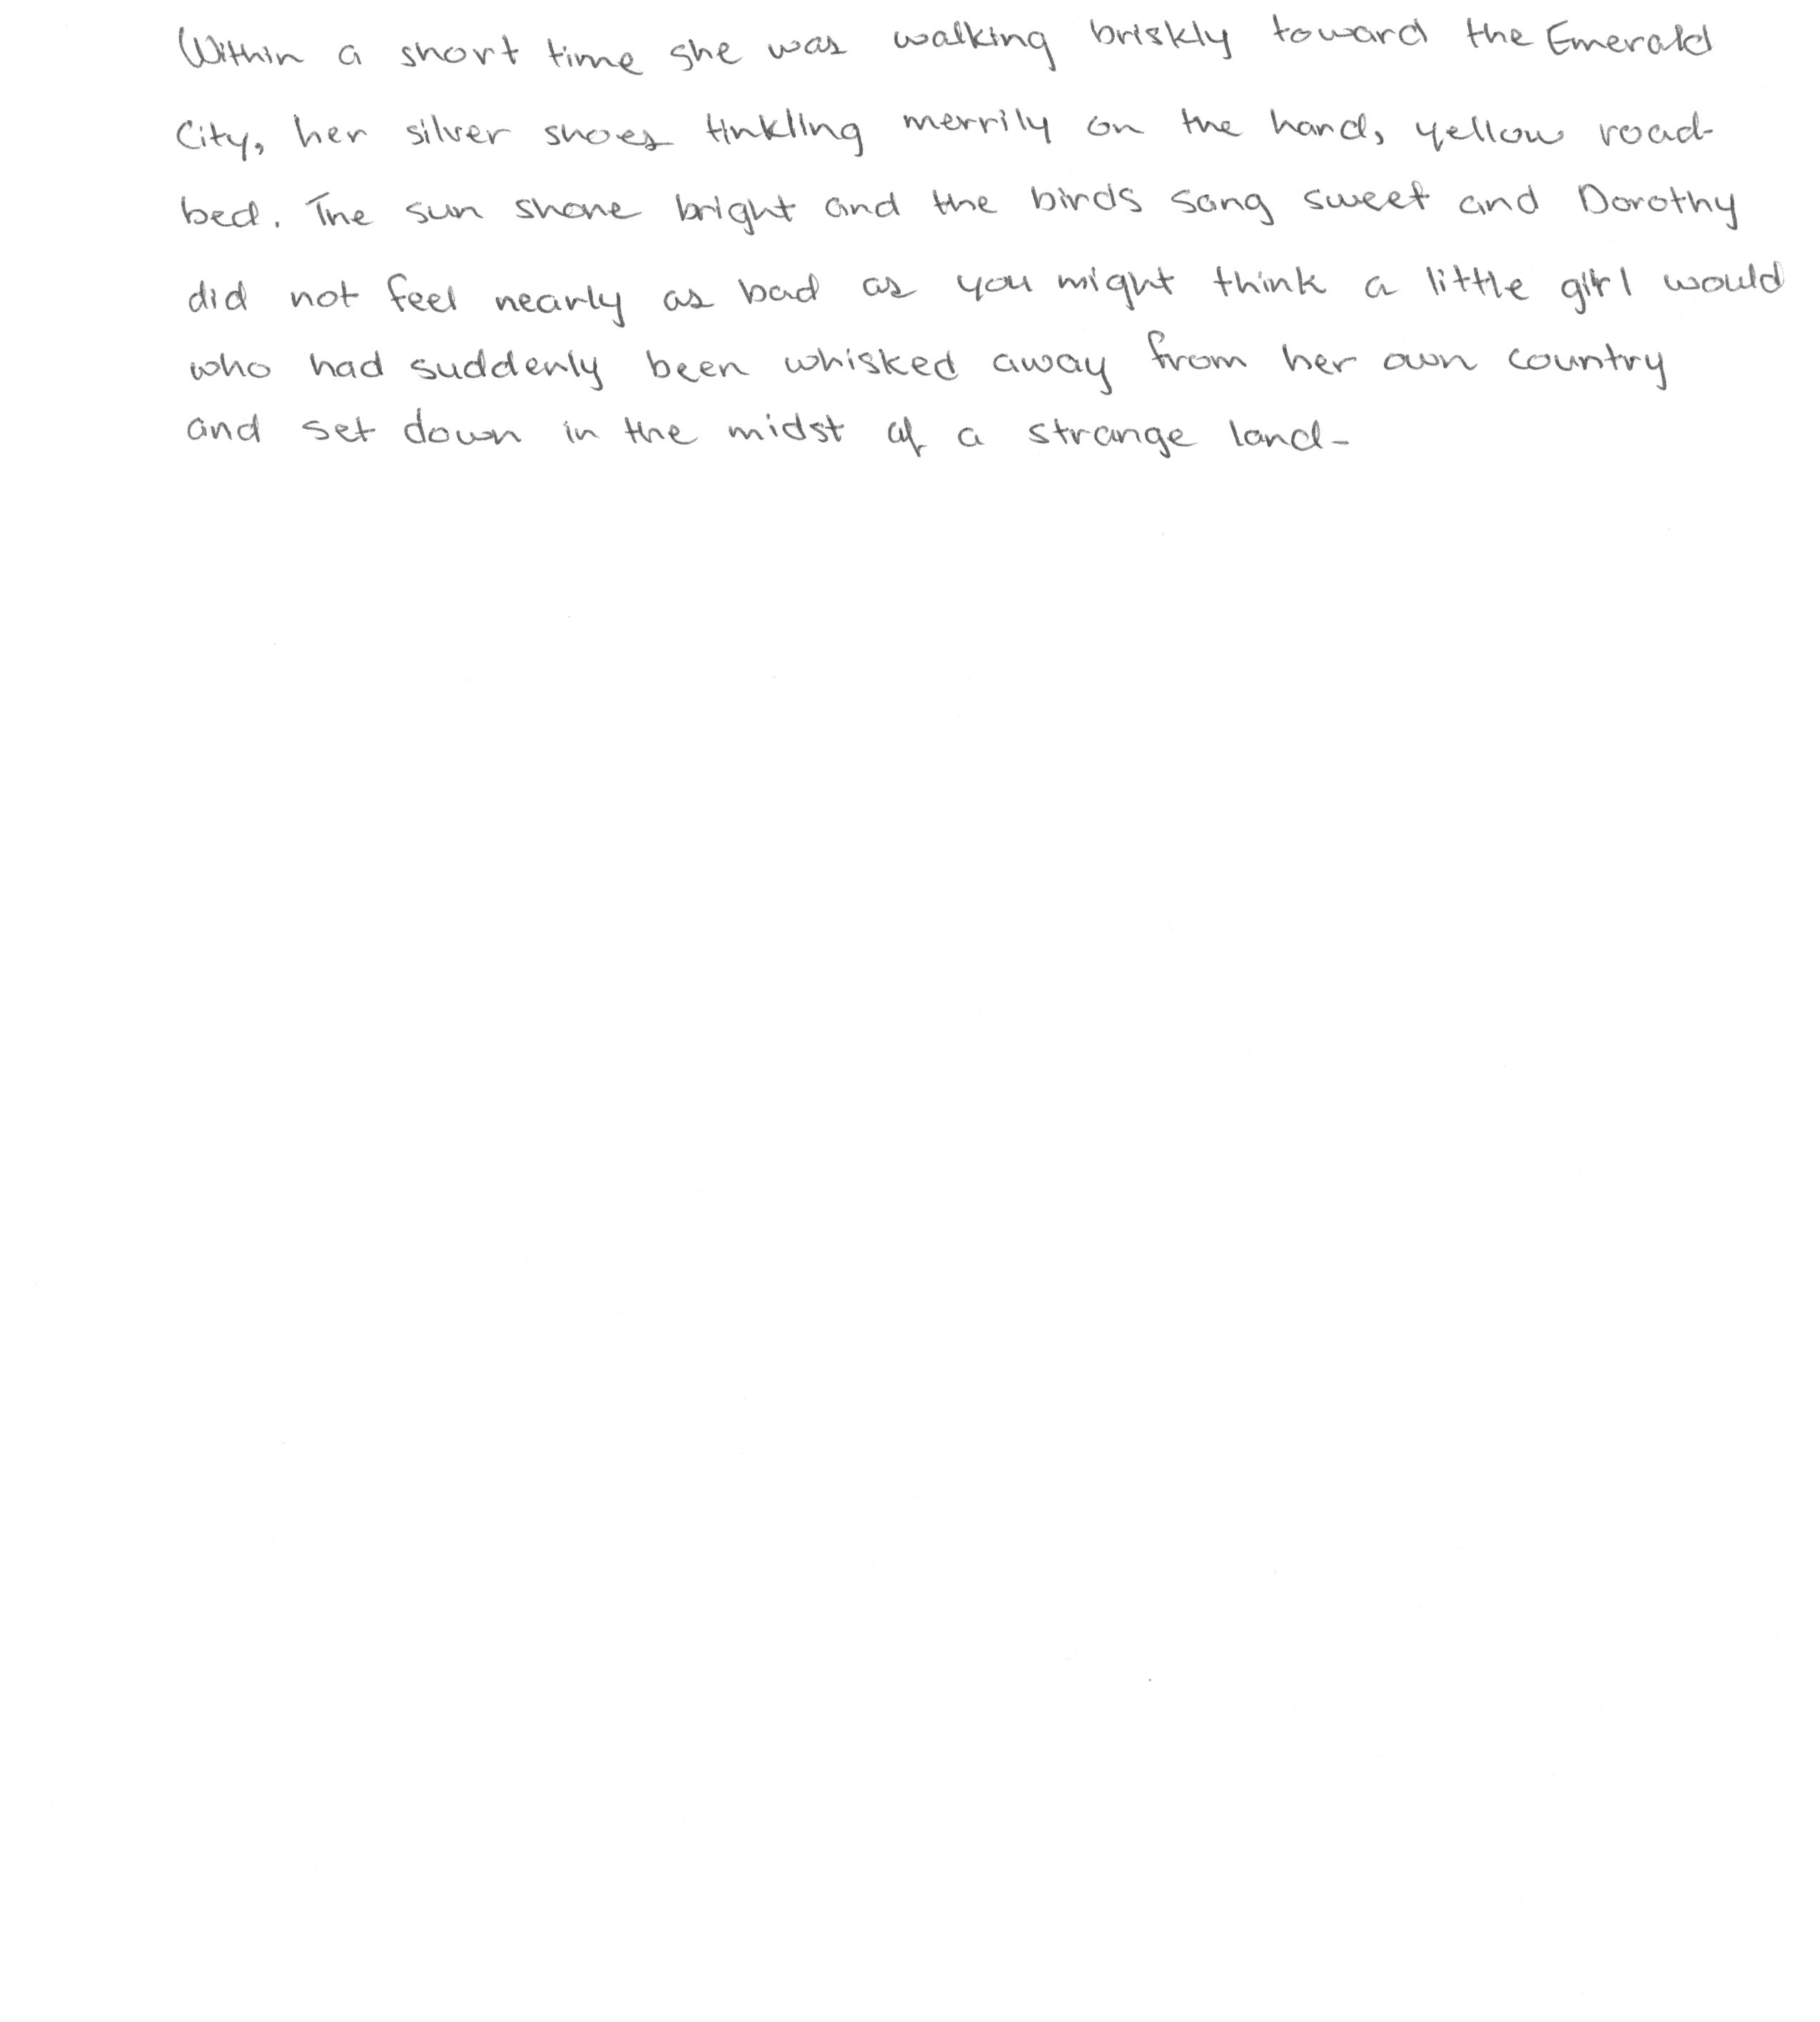 Within a short time she was walking briskly toward the Emerald
City, her silver shoes tinkling merrily on the hard, yellow road-
bed. The sun shone bright and the birds sang sweet and Dorothy
did not feel nearly as bad as you might think a little girl would
who had suddenly been whisked away from her own country
and set down in the midst of a strange land.